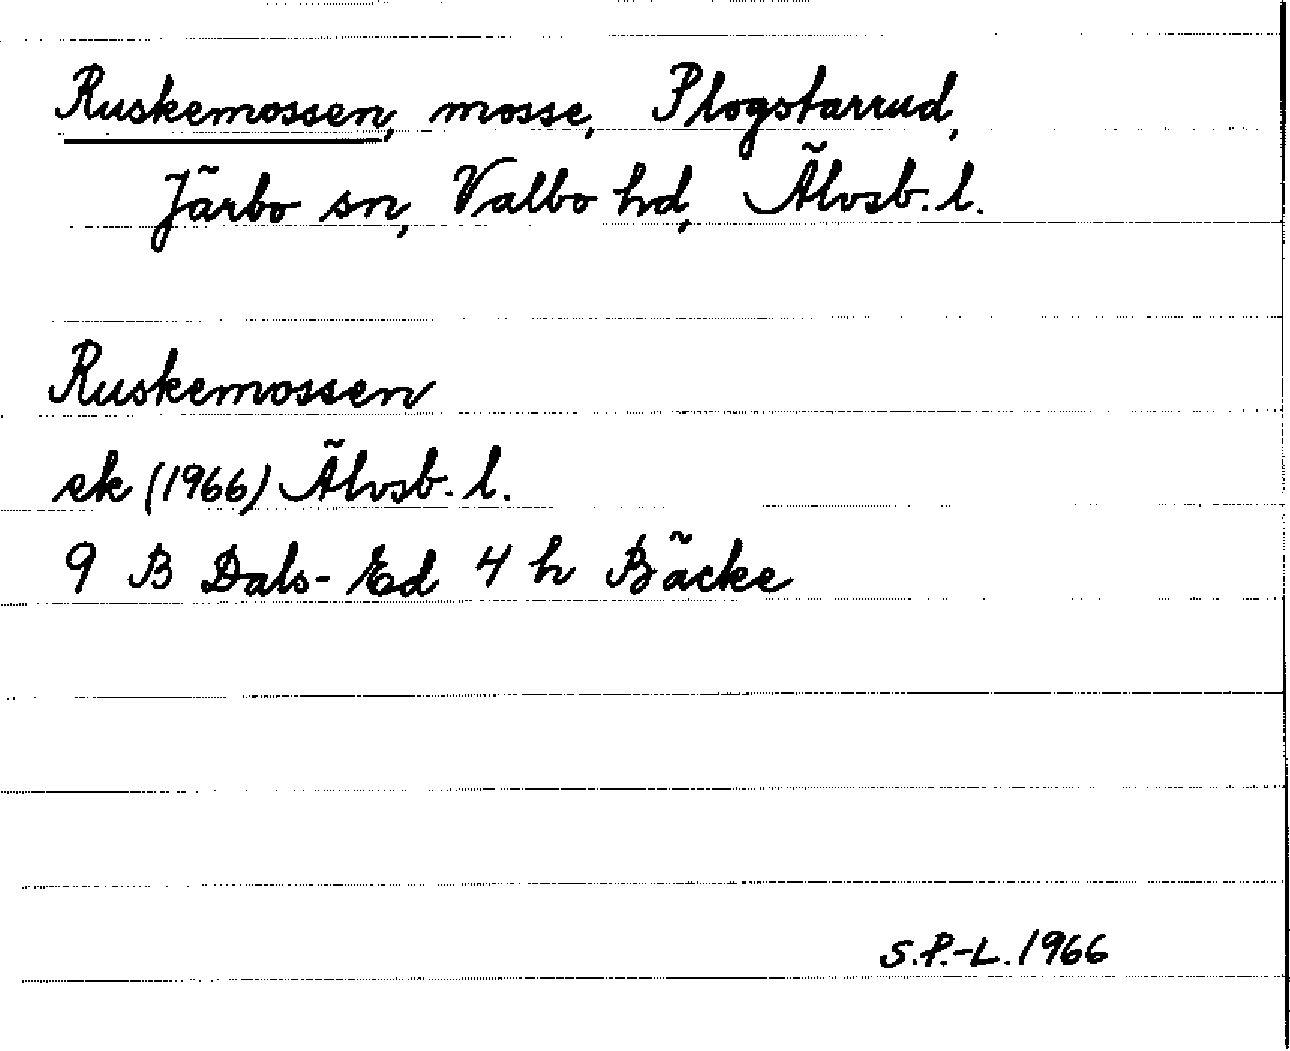 Ruskemossen, mosse, Plogstarrud,
Järbo sn, Valbo hd, Älvsb. l.
Ruskemossen
ek (1966) Älvsb. l.
9 B Dals-Ed 4 h Bäcke
S.P.-L. 1966